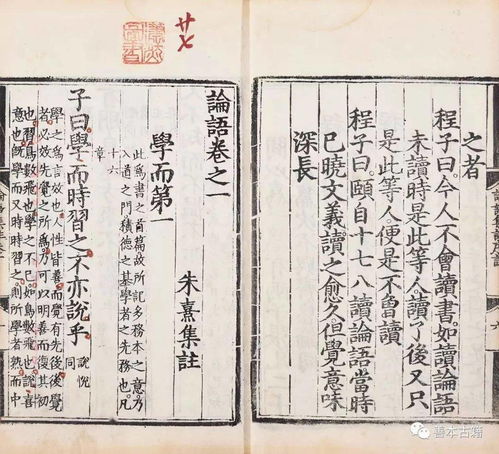 之者
程子曰。今人不會讀書。如讀論語
未讀時是此等人。讀了後又只
是此等人。便是不曾讀
程子曰。頤自十七八讀論語當時
已曉文義。讀之愈久。但覺意味
深長
論語卷之一
朱熹集註
學而第一
此為書之首篇故所記多務本之意乃
入道之門積德之基學者之先務也凡
十六
章
子曰學而時習之不亦說乎
說悅
同
學之為言效也人性皆善而覺有先後後覺
者必效先覺之所為乃可以明善而復其初
也習鳥數飛也學之不已如鳥數飛也說喜
意也既學而又時時習之則所學者熟而中
善本古籍